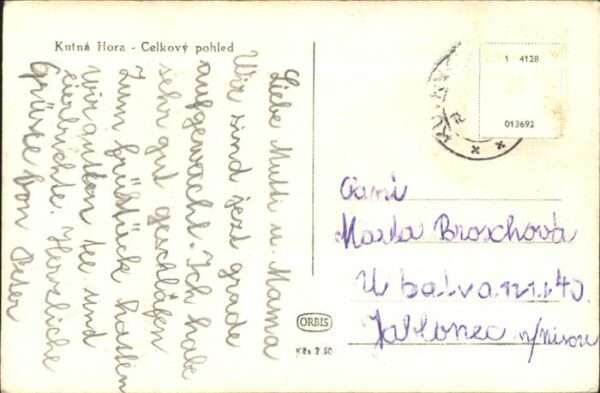 Kutná Hora - Celkový pohled
Liebe Mutti u. Mama
Wir sind jezt grade
aufgewacht. Ich habe
sehr gut geschlafen
Zum frühstück hatten
wir guten tee und
Herzliche
Grüsse von Peter
1 4128
013692
Paní
Marta Broschová
U balvanu 40.
Jablonec n/Nisou
ORBIS
Kčs 2.50